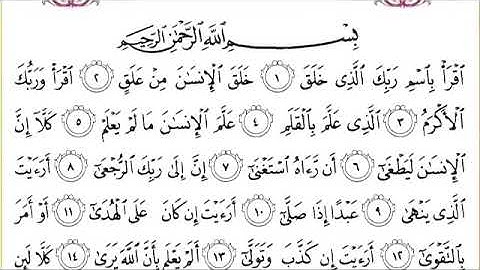 بِسْمِ اللَّهِ الرَّحْمَٰنِ الرَّحِيمِ
ٱقْرَأْ بِٱسْمِ رَبِّكَ ٱلَّذِى خَلَقَ ١ خَلَقَ ٱلْإِنسَٰنَ مِنْ عَلَقٍ ٢ ٱقْرَأْ وَرَبُّكَ
ٱلْأَكْرَمُ ٣ ٱلَّذِى عَلَّمَ بِٱلْقَلَمِ ٤ عَلَّمَ ٱلْإِنسَٰنَ مَا لَمْ يَعْلَمْ ٥ كَلَّآ إِنَّ
ٱلْإِنسَٰنَ لَيَطْغَىٰٓ ٦ أَن رَّءَاهُ ٱسْتَغْنَىٰٓ ٧ إِنَّ إِلَىٰ رَبِّكَ ٱلرُّجْعَىٰٓ ٨ أَرَءَيْتَ
ٱلَّذِى يَنْهَىٰ ٩ عَبْدًا إِذَا صَلَّىٰٓ ١٠ أَرَءَيْتَ إِن كَانَ عَلَى ٱلْهُدَىٰٓ ١١ أَوْ أَمَرَ
بِٱلتَّقْوَىٰٓ ١٢ أَرَءَيْتَ إِن كَذَّبَ وَتَوَلَّىٰٓ ١٣ أَلَمْ يَعْلَم بِأَنَّ ٱللَّهَ يَرَىٰ ١٤ كَلَّا لَئِن